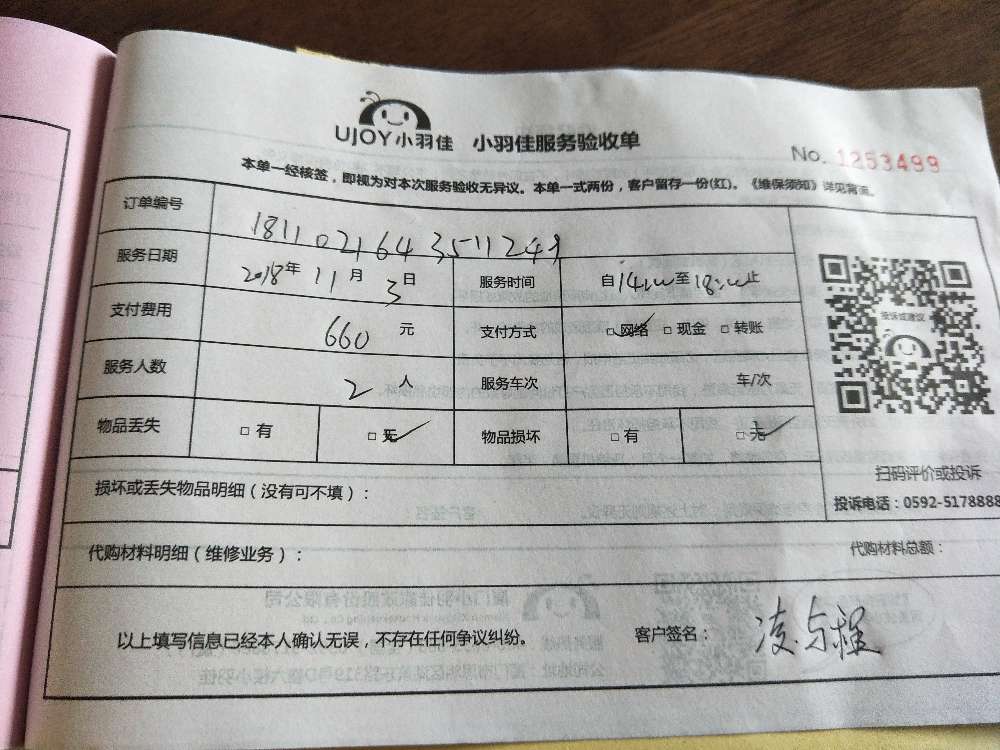 UJOY小羽佳 小羽佳服务验收单
No. 1253499
本单一经核签，即视为对本次服务验收无异议。本单一式两份，客户留存一份(红)。《维保须知》详见背面。
订单编号
服务日期 2018年 11月 3日 服务时间 自14:00至18:00止
投诉或建议
支付费用 660 元 支付方式 □网络 □现金 □转账
服务人数 2 人 服务车次 车/次
物品丢失 □有 □无 物品损坏 □有 □无
扫码评价或投诉
损坏或丢失物品明细（没有可不填）：
投诉电话：0592-5178888
代购材料明细（维修业务）： 代购材料总额：
以上填写信息已经本人确认无误，不存在任何争议纠纷。 客户签名：